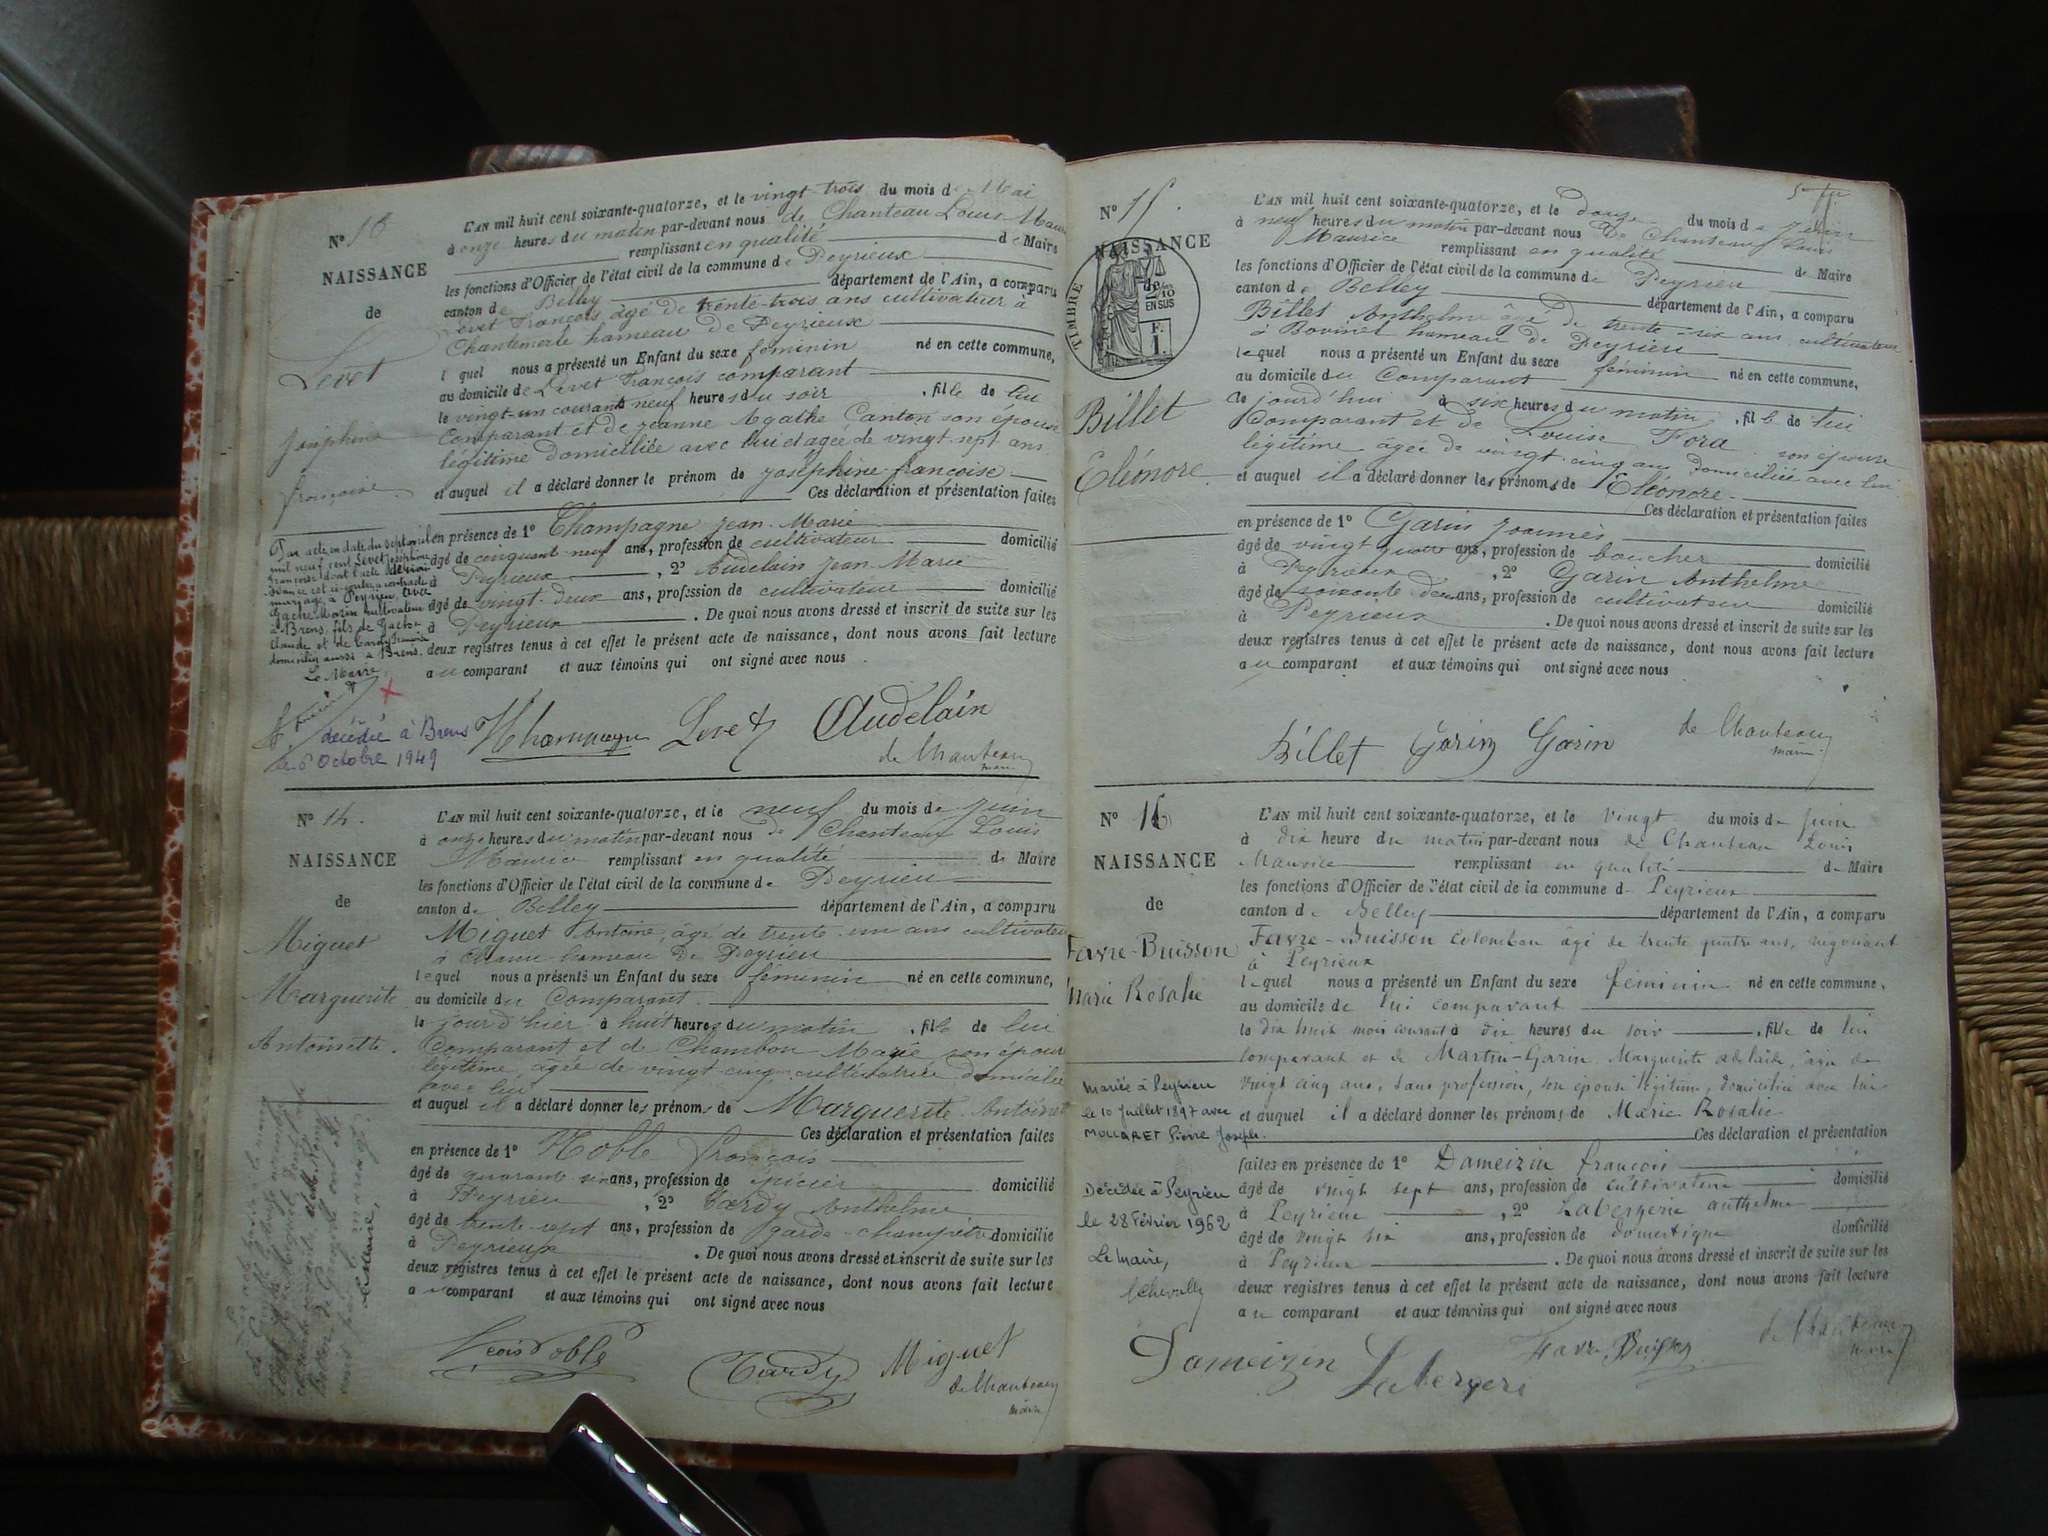 N° 13
NAISSANCE
de
Levet
Joséphine
françoise
L'AN mil huit cent soixante-quatorze, et le vingt trois du mois de Mai
à onze heures du matin par-devant nous de Chanteau Louis Mau
remplissant en qualité de Maire
les fonctions d'Officier de l'état civil de la commune de Peyrieux
canton de Belley département de l'Ain, a comparu
Levet François âgé de trente-trois ans cultivateur à
Chantemerle hameau de Peyrieux
l quel nous a présenté un Enfant du sexe féminin né en cette commune,
au domicile de Levet François comparant
le vingt-un courant neuf heures du soir , fille de lui
comparant et de Jeanne Agathe Canton son épouse
légitime domiciliée avec lui et agée de vingt sept ans
et auquel il a déclaré donner le prénom de joséphine françoise
Ces déclaration et présentation faites
en présence de 1° Champagne Jean Marie
âgé de cinquant neuf ans, profession de cultivateur domicilié
à Peyrieux , 2° Audelain Jean Marie
âgé de vingt-deux ans, profession de cultivateur domicilié
à Peyrieux . De quoi nous avons dressé et inscrit de suite sur les
deux registres tenus à cet effet le présent acte de naissance, dont nous avons fait lecture
au comparant et aux témoins qui ont signé avec nous
Par acte en date du sept avril
mil neuf cent Levet Joséphine
françoise dont l'acte de nais
sance est ci-contre a contracté
mariage à Peyrieu avec
Gache Marin cultivateur
à Brens, fils de Gache
Claude et de Cardy
domiciliés aussi à Brens.
Le Maire,
décédée à Brens
le 6 Octobre 1949
Champagne Levet Audelain
de Chanteau
maire
N° 14.
NAISSANCE
de
Miguet
Marguerite
Antoinette.
L'AN mil huit cent soixante-quatorze, et le neuf du mois de juin
à onze heures du matin par-devant nous de Chanteau Louis
Maurice remplissant en qualité de Maire
les fonctions d'Officier de l'état civil de la commune de Peyrieu
canton de Belley département de l'Ain, a comparu
Miguet Antoine, âgé de trente un ans cultivateu
à hameau de Peyrieu
lequel nous a présenté un Enfant du sexe féminin né en cette commune,
au domicile du Comparant.
le jour d'hier à huit heures du matin , fille de lui
comparant et de Chambon Marie son épou
légitime, agée de vingt cinq, cultivatrice domiciliée
avec lui
et auquel il a déclaré donner les prénoms de Marguerite Antoinet
Ces déclaration et présentation faites
en présence de 1° Noble françois
âgé de quarante six ans, profession de épicier domicilié
à Peyrieu , 2° Tardy Anthelme
âgé de trente-sept ans, profession de garde-champêtre domicilié
à Peyrieux . De quoi nous avons dressé et inscrit de suite sur les
deux registres tenus à cet effet le présent acte de naissance, dont nous avons fait lecture
au comparant et aux témoins qui ont signé avec nous
Noble Tardy Miguet
de Chanteau
maire
N° 15.
NAISSANCE
TIMBRE
2/10
EN SUS
F.
1.
Billet
Eléonore
L'AN mil huit cent soixante-quatorze, et le douze du mois de Juin
à neuf heures du matin par-devant nous De Chanteau Louis
Maurice remplissant en qualité de Maire
les fonctions d'Officier de l'état civil de la commune de Peyrieu
canton de Belley département de l'Ain, a comparu
Billet Anthelme âgé de trente-six ans, cultivateur
à Bovinel hameau de Peyrieu
lequel nous a présenté un Enfant du sexe féminin né en cette commune,
au domicile du Comparant
ce jourd'hui à six heures du matin , fille de lui
Comparant et de Louise Fora son épouse
légitime âgée de vingt-cinq ans domiciliée avec lui
et auquel il a déclaré donner les prénoms de Eléonore
Ces déclaration et présentation faites
en présence de 1° Garin Joannès
âgé de vingt quatre ans, profession de boucher domicilié
à Peyrieux , 2° Garin Anthelme
âgé de soixante deux ans, profession de cultivateur domicilié
à Peyrieux . De quoi nous avons dressé et inscrit de suite sur les
deux registres tenus à cet effet le présent acte de naissance, dont nous avons fait lecture
au comparant et aux témoins qui ont signé avec nous
Billet Garin Garin de Chanteau
maire
N° 16
NAISSANCE
de
Favre-Buisson
Marie Rosalie
L'AN mil huit cent soixante-quatorze, et le vingt du mois de juin
à dix heure du matin par-devant nous de Chanteau Louis
Maurice remplissant en qualité de Maire
les fonctions d'Officier de l'état civil de la commune de Peyrieux
canton de Belley département de l'Ain, a comparu
Favre-Buisson Colomban âgé de trente quatre ans, négociant
à Peyrieux
lequel nous a présenté un Enfant du sexe féminin né en cette commune,
au domicile de lui comparant
le dix huit mois courant à dix heures du soir , fille de lui
comparant et de Martin-Garin Marguerite adelaide, âgée de
vingt cinq ans, sans profession, son épouse légitime, domiciliée avec lui
et auquel il a déclaré donner les prénoms de Marie Rosalie
Ces déclaration et présentation
faites en présence de 1° Dameizin françois
âgé de vingt sept ans, profession de cultivateur domicilié
à Peyrieux , 2° Labergerie anthelme
âgé de vingt six ans, profession de domestique domicilié
à Peyrieux . De quoi nous avons dressé et inscrit de suite sur les
deux registres tenus à cet effet le présent acte de naissance, dont nous avons fait lecture
au comparant et aux témoins qui ont signé avec nous
Mariée à Peyrieu
le 10 Juillet 1897 avec
MOLLARET Pierre Joseph.
Décédée à Peyrieu
le 28 Février 1962
Le Maire,
Dameizin Labergeri Favre Buisson de Chanteau
maire